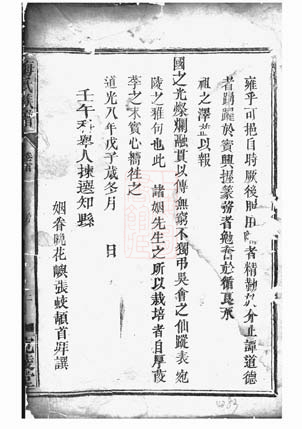 雍乎可挹自時厥後肆用者精勤分止譚道德
者踴躍於賓興握篆務者勉奮於循良承
祖之澤並以報
國之光燦爛融貫以傳無窮不獨弔吳會之仙蹤表宛
陵之雅句也此諸姻先生之所以栽培者自厚葭
莩之末實心嚮往之
道光八年戊子歲冬月 日
壬午科舉人揀選知縣
姻眷曉花嶼張蛟頓首拜譔